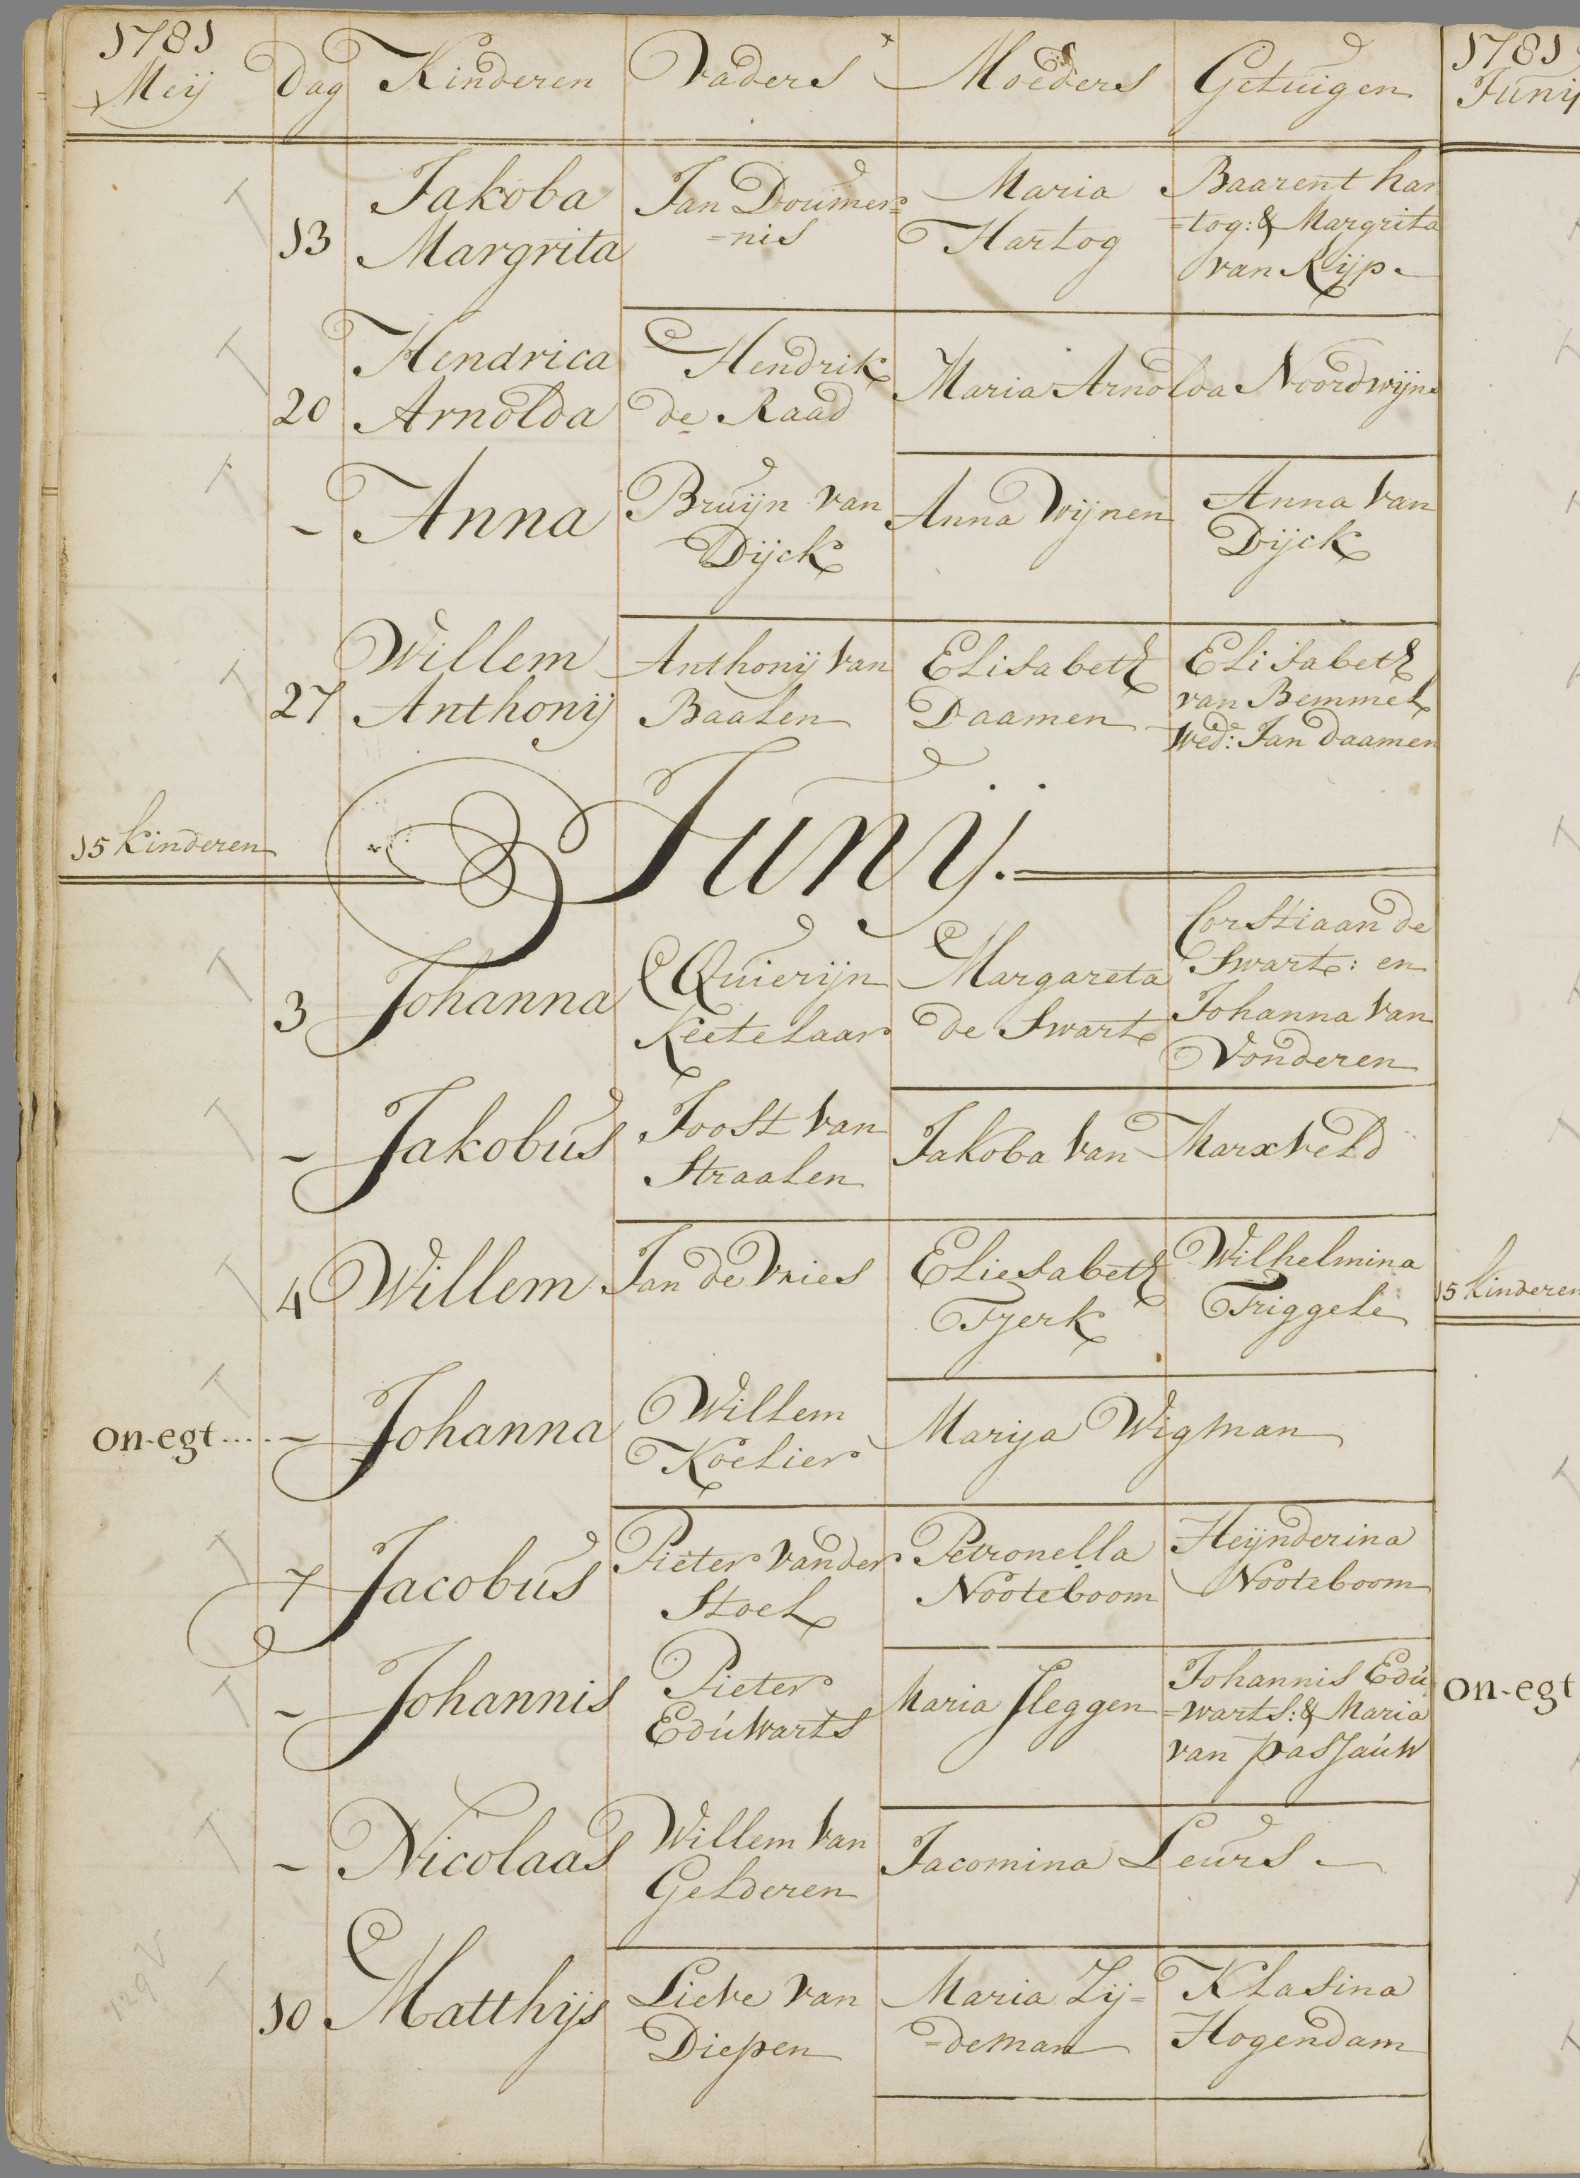 1781
Meij Dag Kinderen Vaders Moeders Getuigen
13 Jakoba Margrita Jan Doumer= =nis Maria Hartog Baarent Har =tog: & Margrita van Rijp
20 Hendrica Arnolda Hendrik de Raad Maria Arnolda Noordwijn
- Anna Bruijn van Dijck Anna Wijnen Anna van Dijck
27 Willem Anthonij Anthonij van Baalen Elisabeth Daamen Elisabeth van Bemmel Wed: Jan Daamen
15 Kinderen
Junij.
3 Johanna Quierijn Keetelaar Margareta de Swart Corstiaan de Swart: en Johanna van Vonderen
- Jakobus Joost van Straalen Jakoba van Marxveld
4 Willem Jan de Vries Eliesabeth Tjerk Wilhelmina Triggele
on-egt.... - Johanna Willem Koelier Marija Wigman
7 Jacobus Pieter vander Stoel Petronella Nooteboom Heijnderina Nooteboom
- Johannis Pieter Eduwarts Maria Sleggen Johannis Edu =warts: & Maria van Passauw
- Nicolaas Willem van Gelderen Jacomina Leurs
10 Matthijs Lieve van Diepen Maria Zij= =deman Klasina Hogendam
129V
1781
Junij
15 Kinderen
on-egt